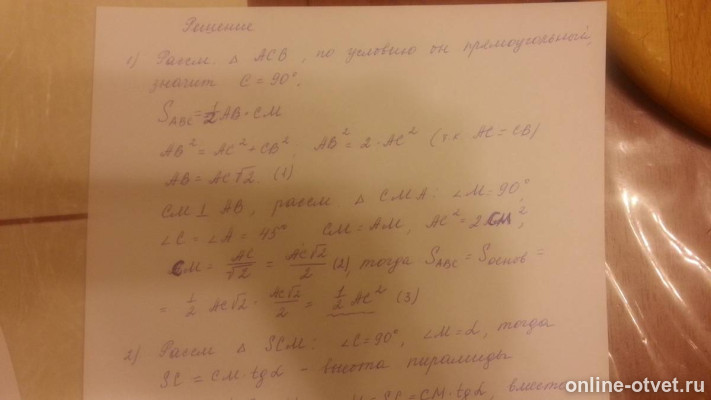 Решение
1) Рассм. △ ACB, по условию он прямоугольный,
значит C = 90°.
S_ABC = 1/2 AB · CM
AB² = AC² + CB², AB² = 2 · AC² (т.к AC = CB)
AB = AC√2 (1)
CM ⊥ AB, рассм. △ CMA: ∠M = 90°,
∠C = ∠A = 45° CM = AM, AC² = 2CM²,
CM = AC/√2 = AC√2/2 (2), тогда S_ABC = S_основ =
= 1/2 AC√2 · AC√2/2 = 1/2 AC² (3)
2) Рассм △ SCM: ∠C = 90°, ∠M = α, тогда
SC = CM · tgα - высота пирамиды
= SC = CM · tgα, вместо
online-otvet.ru